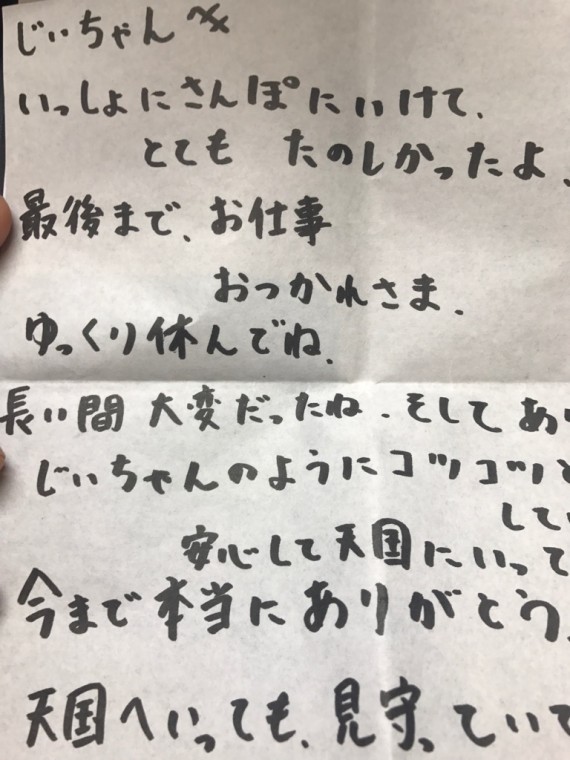 じぃちゃんへ
いっしょにさんぽにいけて、
とても たのしかったよ、
最後まで、お仕事
おっかれさま.
ゆっくり休んでね.
長い間 大変だったね.そして あり
じぃちゃんのようにコツコツと
してい
安心して天国にいって
今まで本当にありがとう.
天国へいっても、見守っていて